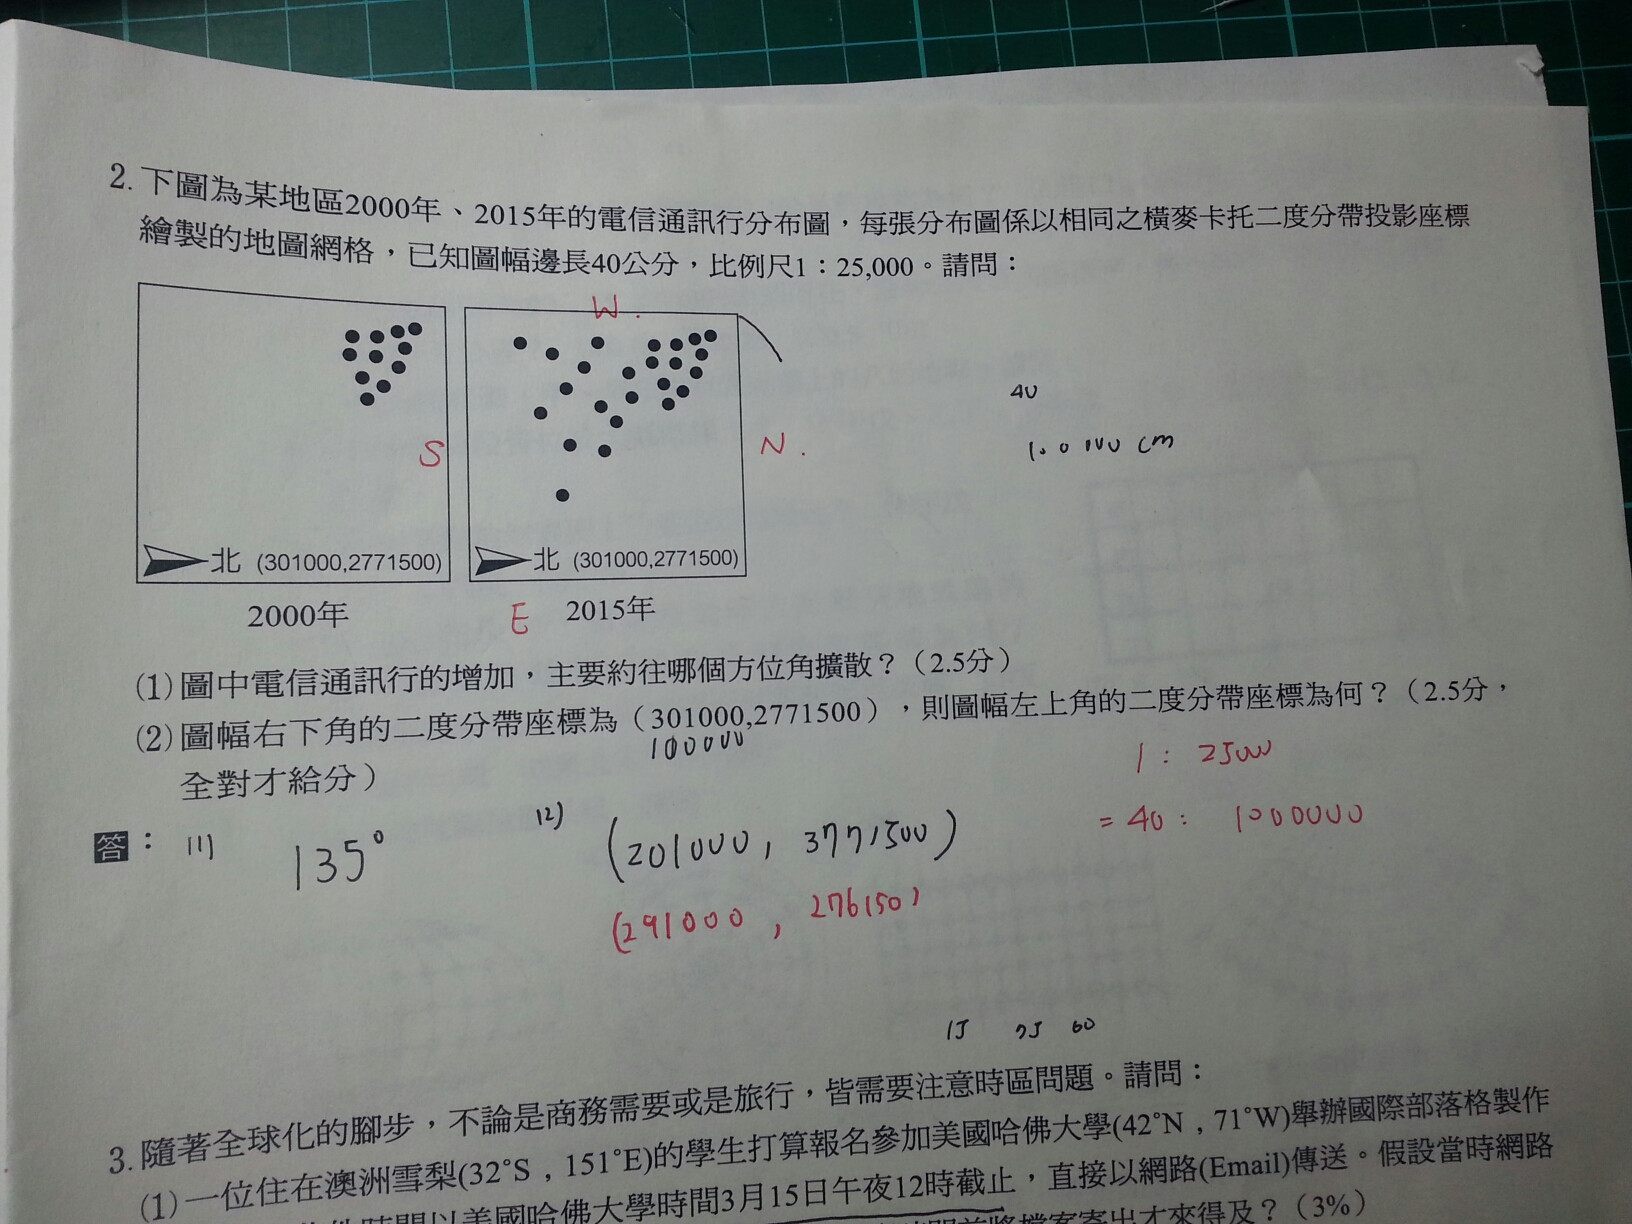 2. 下圖為某地區2000年、2015年的電信通訊行分布圖,每張分布圖係以相同之橫麥卡托二度分帶投影座標
繪製的地圖網格,已知圖幅邊長40公分,比例尺1:25,000。請問:
W.
S
N.
40
cm
北 (301000,2771500)
北 (301000,2771500)
2000年
E
2015年
(1)圖中電信通訊行的增加,主要約往哪個方位角擴散?(2.5分)
(2)圖幅右下角的二度分帶座標為(301000,2771500),則圖幅左上角的二度分帶座標為何?(2.5分,
100000
全對才給分)
1 : 25000
= 40 : 1000000
答: (1) 135° (2) (201000, 3771500)
(291000, 276150)
15 75 60
3. 隨著全球化的腳步,不論是商務需要或是旅行,皆需要注意時區問題。請問:
(1)一位住在澳洲雪梨(32°S,151°E)的學生打算報名參加美國哈佛大學(42°N,71°W)舉辦國際部落格製作
以美國哈佛大學時間3月15日午夜12時截止,直接以網路(Email)傳送。假設當時網路
將檔案寄出才來得及?(3%)